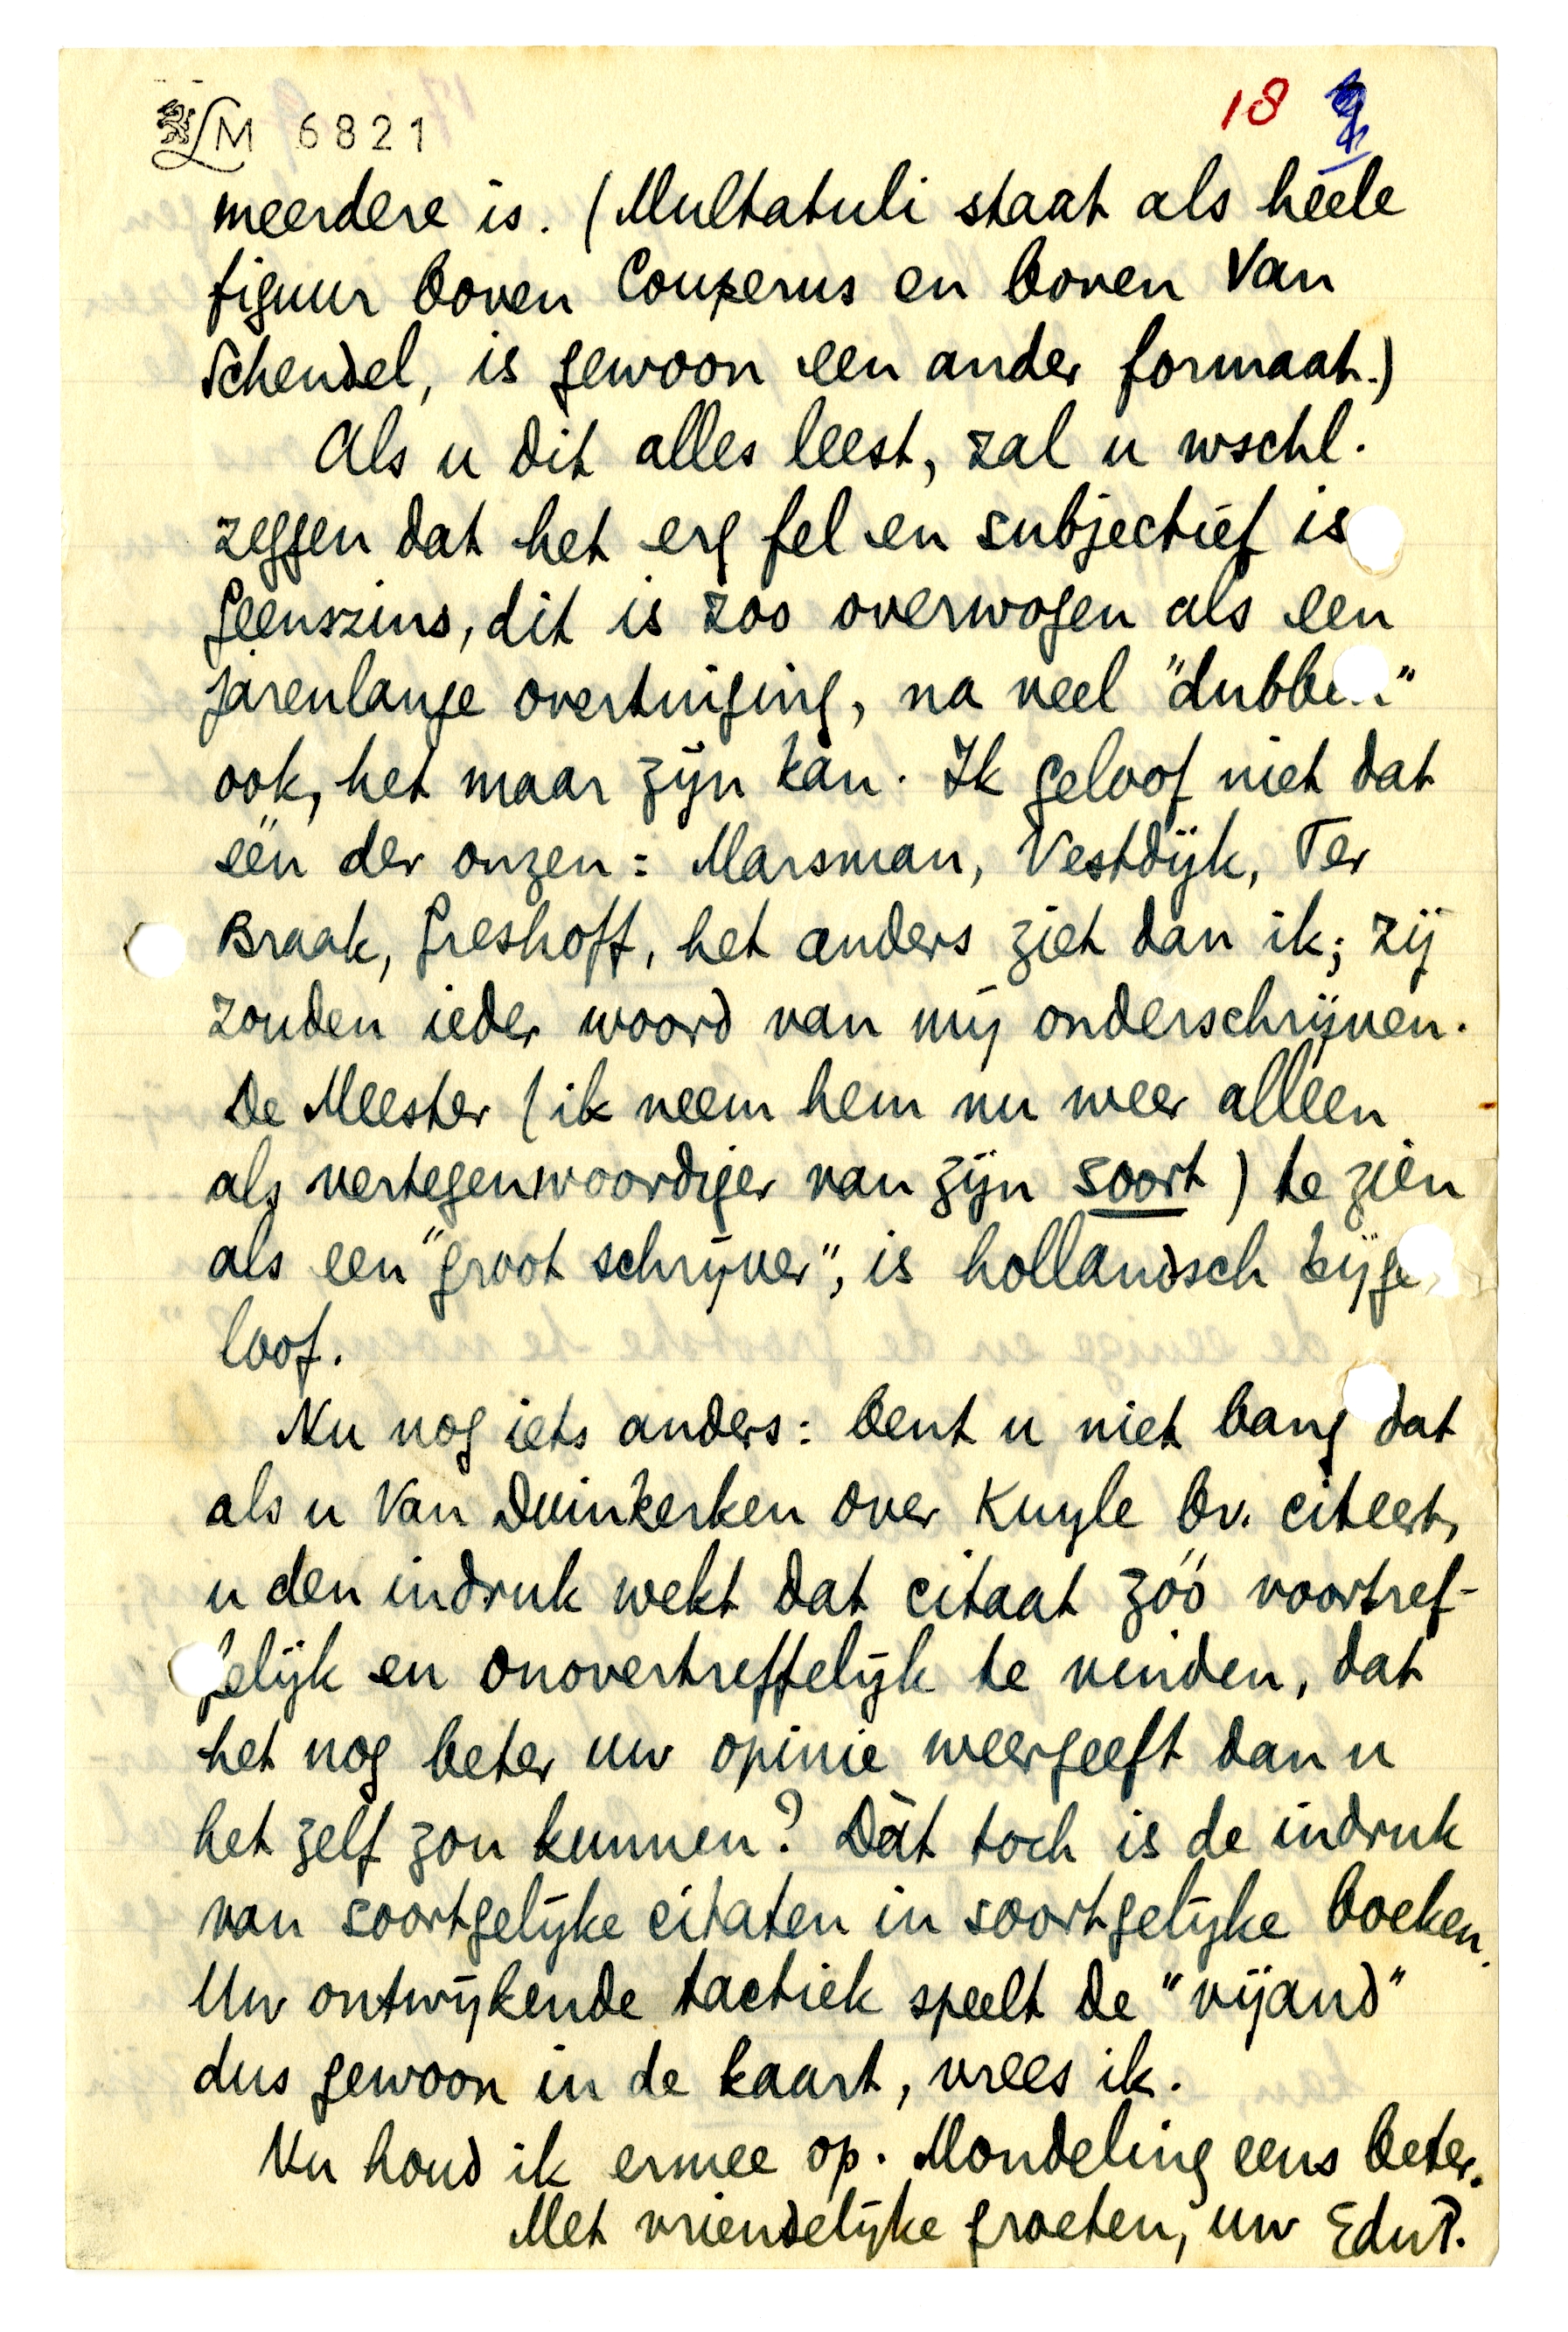 LM 6821
18
meerdere is. (Multatuli staat als héele
figuur boven Couperus en boven Van
Schendel, is gewoon een ander formaat.)
Als u dit alles leest, zal u wschl.
zeggen dat het erg fel en subjectief is
Geenszins, dit is zoo overwogen als een
jarenlange overtuiging, na veel "dubben"
ook, het maar zijn kàn. Ik geloof niet dat
één der onzen: Marsman, Vestdijk, Ter
Braak, Greshoff, het anders ziet dan ik; zij
zouden ieder woord van mij onderschrijven.
De Meester (ik neem hem nu weer alleen
als vertegenwoordiger van zijn soort) te zien
als een "groot schrijver", is hollandsch bijge
loof.
Nu nog iets anders: bent u niet bang dat
als u Van Duinkerken over Kuyle bv. citeert,
u den indruk wekt dat citaat zóó voortref-
felijk en onovertreffelijk te vinden, dat
het nog beter uw opinie weergeeft dan u
het zelf zou kunnen? Dàt toch is de indruk
van soortgelijke citaten in soortgelijke boeken.
Uw ontwijkende tactiek speelt de "vijand"
dus gewoon in de kaart, vrees ik.
Nu houd ik ermee op. Mondeling eens beter.
Met vriendelijke groeten, uw EduP.